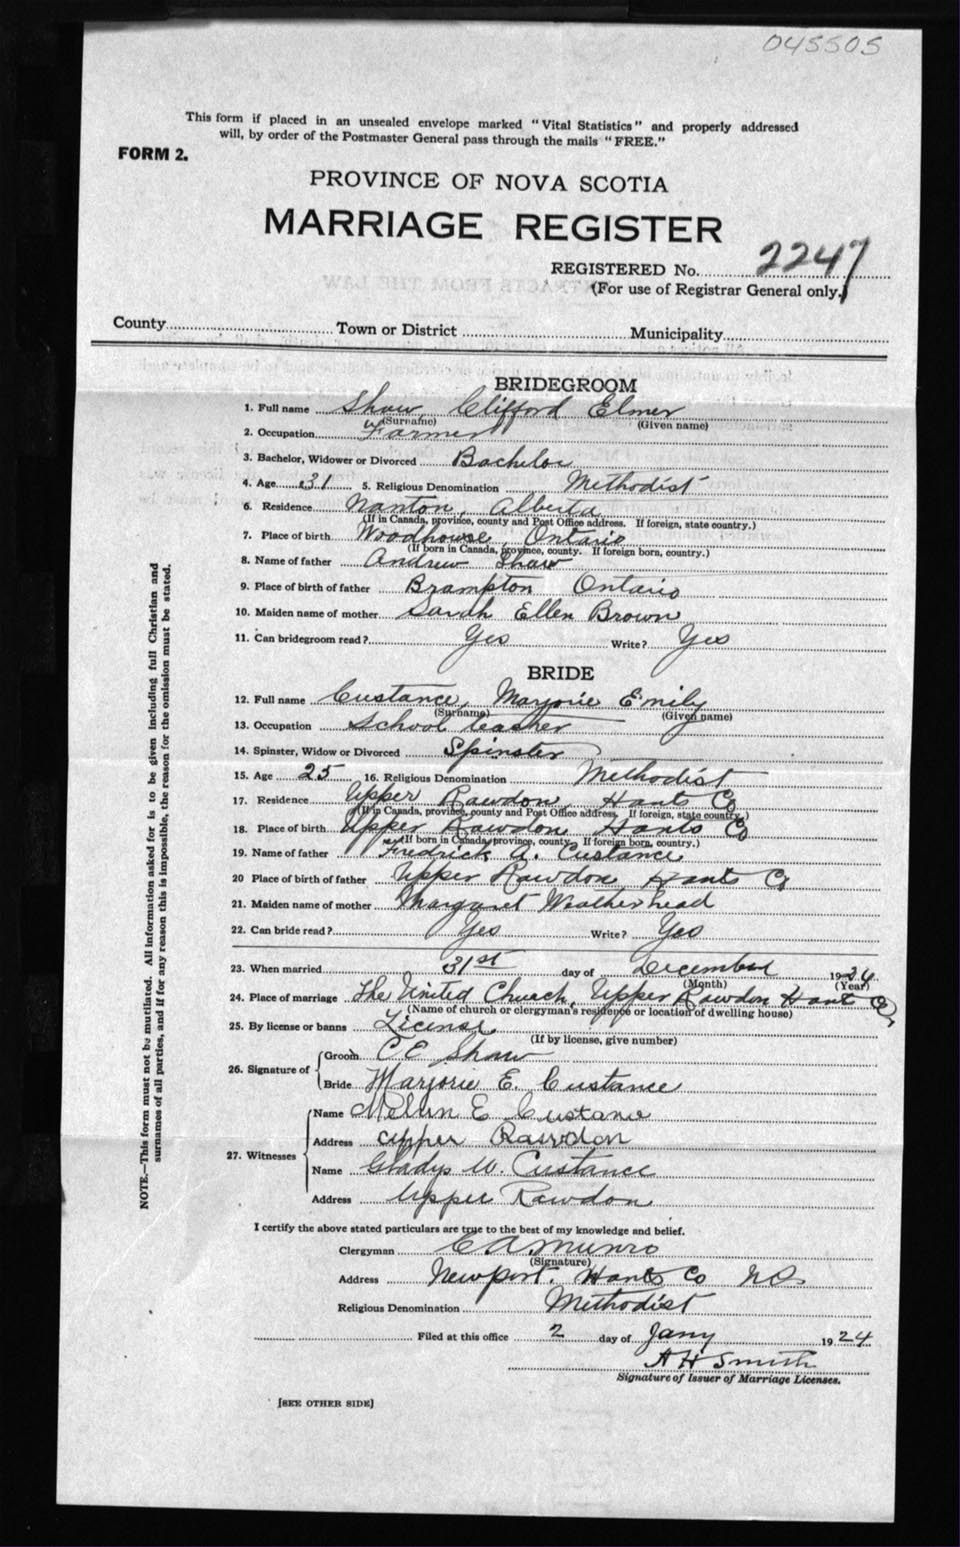 045505
This form if placed in an unsealed envelope marked "Vital Statistics" and properly addressed
will, by order of the Postmaster General pass through the mails "FREE."
FORM 2.
PROVINCE OF NOVA SCOTIA
MARRIAGE REGISTER
REGISTERED No. 2247
(For use of Registrar General only.)
County Town or District Municipality
BRIDEGROOM
1. Full name Shaw, Clifford Elmer
(Surname) (Given name)
2. Occupation Farmer
3. Bachelor, Widower or Divorced Bachelor
4. Age 31 5. Religious Denomination Methodist
6. Residence Nanton, Alberta
(If in Canada, province, county and Post Office address. If foreign, state country.)
7. Place of birth Woodhouse, Ontario
(If born in Canada, province, county. If foreign born, country.)
8. Name of father Andrew Shaw
9. Place of birth of father Brampton Ontario
10. Maiden name of mother Sarah Ellen Brown
11. Can bridegroom read? Yes Write? Yes
BRIDE
12. Full name Custance, Marjorie Emily
(Surname) (Given name)
13. Occupation School teacher
14. Spinster, Widow or Divorced Spinster
15. Age 25 16. Religious Denomination Methodist
17. Residence Upper Rawdon, Hants Co
(If in Canada, province, county and Post Office address. If foreign, state country.)
18. Place of birth Upper Rawdon Hants Co
(If born in Canada, province, county. If foreign born, country.)
19. Name of father Fredrick A. Custance
20 Place of birth of father Upper Rawdon Hants Co
21. Maiden name of mother Margaret Weatherhead
22. Can bride read? Yes Write? Yes
23. When married 31st day of December 1924
(Month) (Year)
24. Place of marriage The United Church, Upper Rawdon Hants Co,
(Name of church or clergyman's residence or location of dwelling house)
25. By license or banns License
(If by license, give number)
26. Signature of Groom C E Shaw
Bride Marjorie E. Custance
27. Witnesses Name E Custance
Address Upper Rawdon
Name Gladys W. Custance
Address Upper Rawdon
I certify the above stated particulars are true to the best of my knowledge and belief.
Clergyman C A Munro
(Signature)
Address Newport. Hants Co N.S.
Religious Denomination Methodist
Filed at this office 2 day of Jany 1924
A H Smith
Signature of Issuer of Marriage Licenses.
[SEE OTHER SIDE]
NOTE.—This form must not be mutilated. All information asked for is to be given including full Christian and
surnames of all parties, and if for any reason this is impossible, the reason for the omission must be stated.